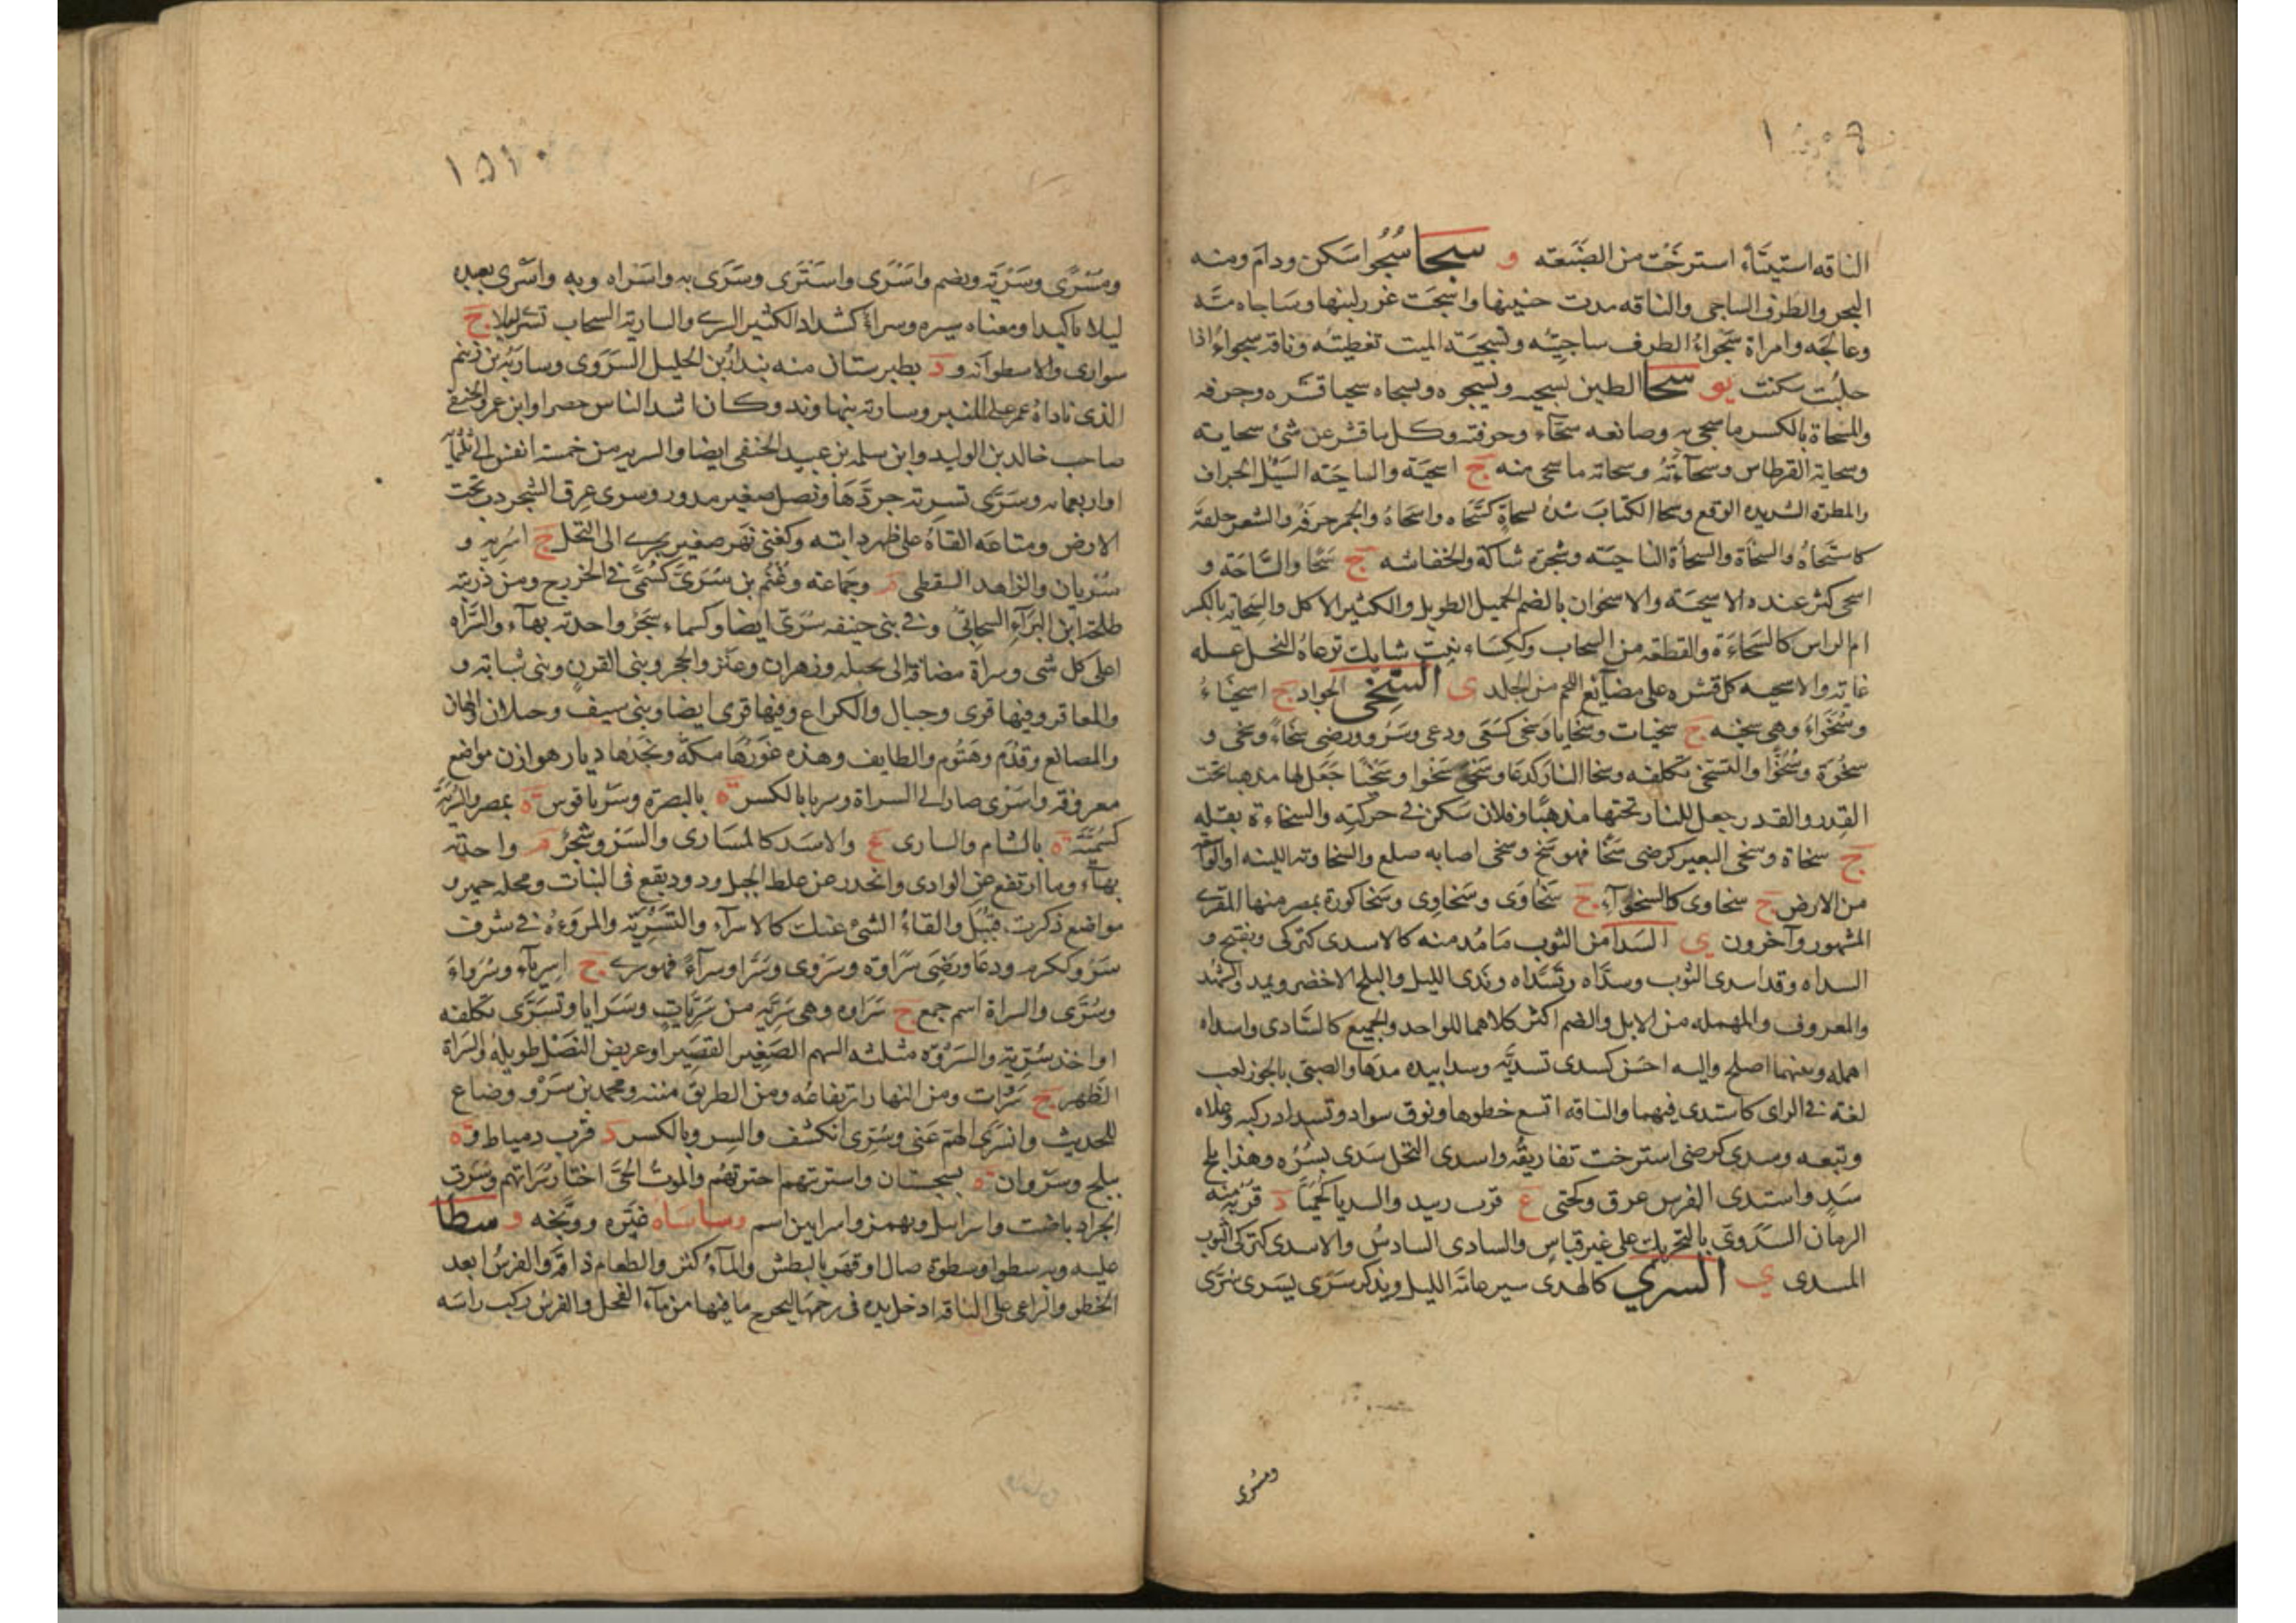 الناقه استيتاء استرخت من الضبعه و سجا سُجُوا سكن ودام ومنه
البحر والطرف الساجى والناقه مدت حنينها واسجت غزر لبنها وساجاه مسّه
وعالجه وامراة سجواءُ الطرف ساجيتُه وتسجية الميت تغطيتُه وناقه سجواءُ اذا
حلبت سكنت يو سحا الطين يسحيه ويسحوه ويسحاه سحيا قشره وجرفه
والمسحاة بالكسر ما سحى به وصانعه سحّاء وحرفته وكل ما قشر عن شئ سحاية
وسحاية القرطاس وسحآءتُه وسحاته ما سحى منه ج اسحية والساحية السيل الجراف
والمطرة الشديده الوقع وسحا الكتاب شده بسحاةٍ كسّحاه واسحاهُ والجمر جرفه والشعر حلقه
كاستحاهُ والسحاة والسحاة الناحيته وشجرة شاكة والخفاشه ج سحا والساحة و
اسحى كثر عنده الاسحية والاسحوان بالضم الجميل الطويل والكثير الاكل والسحاية بالكسر
ام الراس كالسحاءة والقطعه من السحاب وككساء نبت شايك ترعاهُ النحل عسله
غاية والاسحيه كل قشره على مضايغ اللحم من الجلد ى السخى الجواد ج اسخياءُ
وسُخَواءُ وهى سخيه ج سخيات وسخايا وسخى كسعى ودعى وسرُو ورضى سخاءً وسخى و
سخوة وسُخُوّا والتسخى تكلفه وسخا النار كدعا وسعى سخوا وسخيا جعل لها مذهبا تحت
القدر والقدر جعل للنار تحتها مذهبًا وفلان سكن فى حركته والسخاءة بقله
ج سخاة وسخى البعير كرضى سخًا فهو سخ وسخى اصابه ضلع والسخاوية اللينه او الواسعة
من الارض ج سخاوى كالسخواء ج سَخاوَى وسَخاوِى وسَخا كورة بمصر منها المقرى
المشهور وآخرون ى السدا من الثوب ما مُد منه كالاسدى كتركى ويفتح و
السداه وقد اسدى الثوب وسدّاه وتسّداه وندى الليل والبلح الاخضر ويمد والشُهد
والمعروف والمهمله من الابل والضم اكثر كلاهما للواحد والجميع كالسّادى واسداه
اهمله وبينهما اصلح واليه احسن كسدى تسديَة وسدا بيده مدها والصبى بالجوز لعب
لغة فى الزاى كاستدى فيهما والناقه اتسع خطوها ونوق سواد وتسداه ركبه وعلاه
وتبعه وسدى كرضى استرخت تفاريقُه واسدى النخل سَدى بُسرُه وهذا بلح
سَدٍ واستدى الفرس عرق وكحتى ع قرب زبيد والسديا كحُميّا د قربه منه
الرمان السدوىّ بالتحريك على غير قياس والسادى السادسُ والاسدى كتركى الثوب
المسدى ى السرى كالهدى سير عامة الليل ويذكر سرَى يسرى سُرًى
ومسرى
ومَسرًى وسَرْيَة ويضم واسْرَى واستَرَى وسَرَى به واسراه وبه واسْرى بعبده
ليلا تاكيدا ومعناه سيره وسراءُ كشداد الكثير السرى والسارية السحاب تسرى ليلا ج
سوارى والاسطوانه و د بطبرستان منه بندارُ بن الخليل السرَوى وسارية بن زنيم
الذى ناداهُ عمر على المنبر وسارية بنهاوند وكان اشد الناس حصرا وابن عمرو الحنفى
صاحب خالد بن الوليد وابن سلمه بن عبيد الحنفى ايضا والسريه من خمسة انفس الى ثلثماية
او اربعمايه وسَرّى تسرية جردَها ونصل صغير مدور وسرى عِرق الشجر دب تحت
الارض ومتاعه القاهُ على ظهر دابته وكغنى نهر صغير يجرى الى النخل ج اسريه و
سُريان والزاهد السقطى م وجماعة وغنم بن سُرَىّ كسُمَىّ فى الخزرج ومن ذريته
طلحة ابن البراء السحابىُّ وفى بنى حنيفه سُرَىّ ايضا وكسماء شجرٌ واحدته بهاء والسَّراه
اعلى كل شى وسراةُ مضافة الى بجيله وزهران وعنز والحجر وبنى القرن وبنى شبابة و
والمعافر وفيها قرى وجبال والكراع وفيها قرى ايضا وبنى سيف وختلان الهان
والمصانع وقُدَم وهَتُوم والطايف وهذه غورُها مكة ونجدُها ديار هوازن مواضع
معروفه واسَرى صار الى السراة وسريا بالكسر ة بالبصرة وسَرياقوس ة بمصر والسُريّة
كسُميّة ة بالشام والسارى ع والاسد كالمسارى والسَرو شجرٌ م واحدته
بهاء وما ارتفع عن الوادى وانحدر عن غلظ الجبل ودود يقع فى النبات ومحله حمير و
مواضع ذكرت قبيل والقاءُ الشئ عنك كالاسراء والتسرية والمروءة فى شرف
سَرُو ككرم ودعا ورضى سَراوة وسروى وسَرًا وسراءً فهو سرى ج اسرياء وسُرواءَ
وسُرَى والسراة اسم جمع ج سَراوه وهى سَرِيّه من سَريّاتٍ وسَرايا وتسَرّى تكلفه
او اخذ سُرّية والسَروُة مثلثه السهم الصغير القصير او عريض النصل طويله والسراة
الظهر ج سروات ومن النهار ارتفاعُه ومن الطريق متنه ومحمد بن سَرْو وضاع
للحديث وانسرى الهم عنى وسُرى انكشف والسرو بالكسر د قرب دمياط وة
ببلخ وسَرْوان ة بسجستان واستريتهم اخترتهُم والموتُ الحىَّ اختار سراتهم وسَرت
الجراد باضت واسرائيل ويهمز واسرايين اسم وساساه عيّره ووبّخه و سطا
عليه وبه سطوا وسطوة صال او قهر بالبطش والماءُ كثر والطعام ذاقه والفرسُ ابعد
الخطو والراعى على الناقه ادخل يده فى رحمها ليخرج ما فيها من ماء الفحل والفرس ركب راسَه